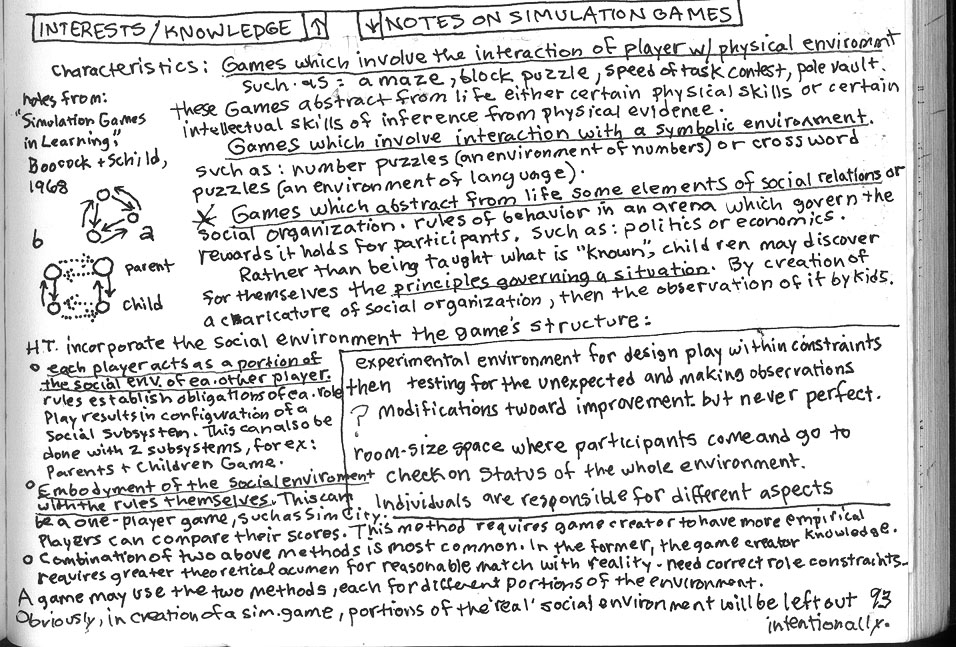 INTERESTS/KNOWLEDGE ↑ ↓ NOTES ON SIMULATION GAMES
Characteristics: Games which involve the interaction of player w/ physical enviromnt
such as: a maze, block puzzle, speed of task contest, pole vault.
these Games abstract from life either certain physical skills or certain
intellectual skills of inference from physical evidence.
Games which involve interaction with a symbolic environment.
such as: number puzzles (an environment of numbers) or cross word
puzzles (an environment of language).
Games which abstract from life some elements of social relations or
social organization. rules of behavior in an arena which govern the
rewards it holds for participants. Such as: politics or economics.
Rather than being taught what is "known", children may discover
for themselves the principles governing a situation. By creation of
a charicature of social organization, then the observation of it by kids.
notes from:
"Simulation Games
in Learning",
Boocock + Schild,
1968
b a
parent
child
H.T. incorporate the social environment the game's structure:
each player acts as a portion of
the social env. of ea. other player.
rules establish obligations of ea. role
Play results in configuration of a
social subsystem. This can also be
done with 2 subsystems, for ex:
Parents + Children Game.
Embodyment of the Social enviroment
with the rules themselves. This can
be a one-player game, such as Sim City.
Players can compare their scores. This method requires game creator to have more empirical
knowledge.
Combination of two above methods is most common. In the former, the game creator
requires greater theoretical acumen for reasonable match with reality - need correct role constraints.
A game may use the two methods, each for different portions of the environment.
Obviously, in creation of a sim. game, portions of the 'real' social environment will be left out
intentionally.
experimental environment for design play within constraints
then testing for the unexpected and making observations
? modifications twoard improvement. but never perfect.
room-size space where participants come and go to
check on status of the whole environment.
Individuals are responsible for different aspects
93